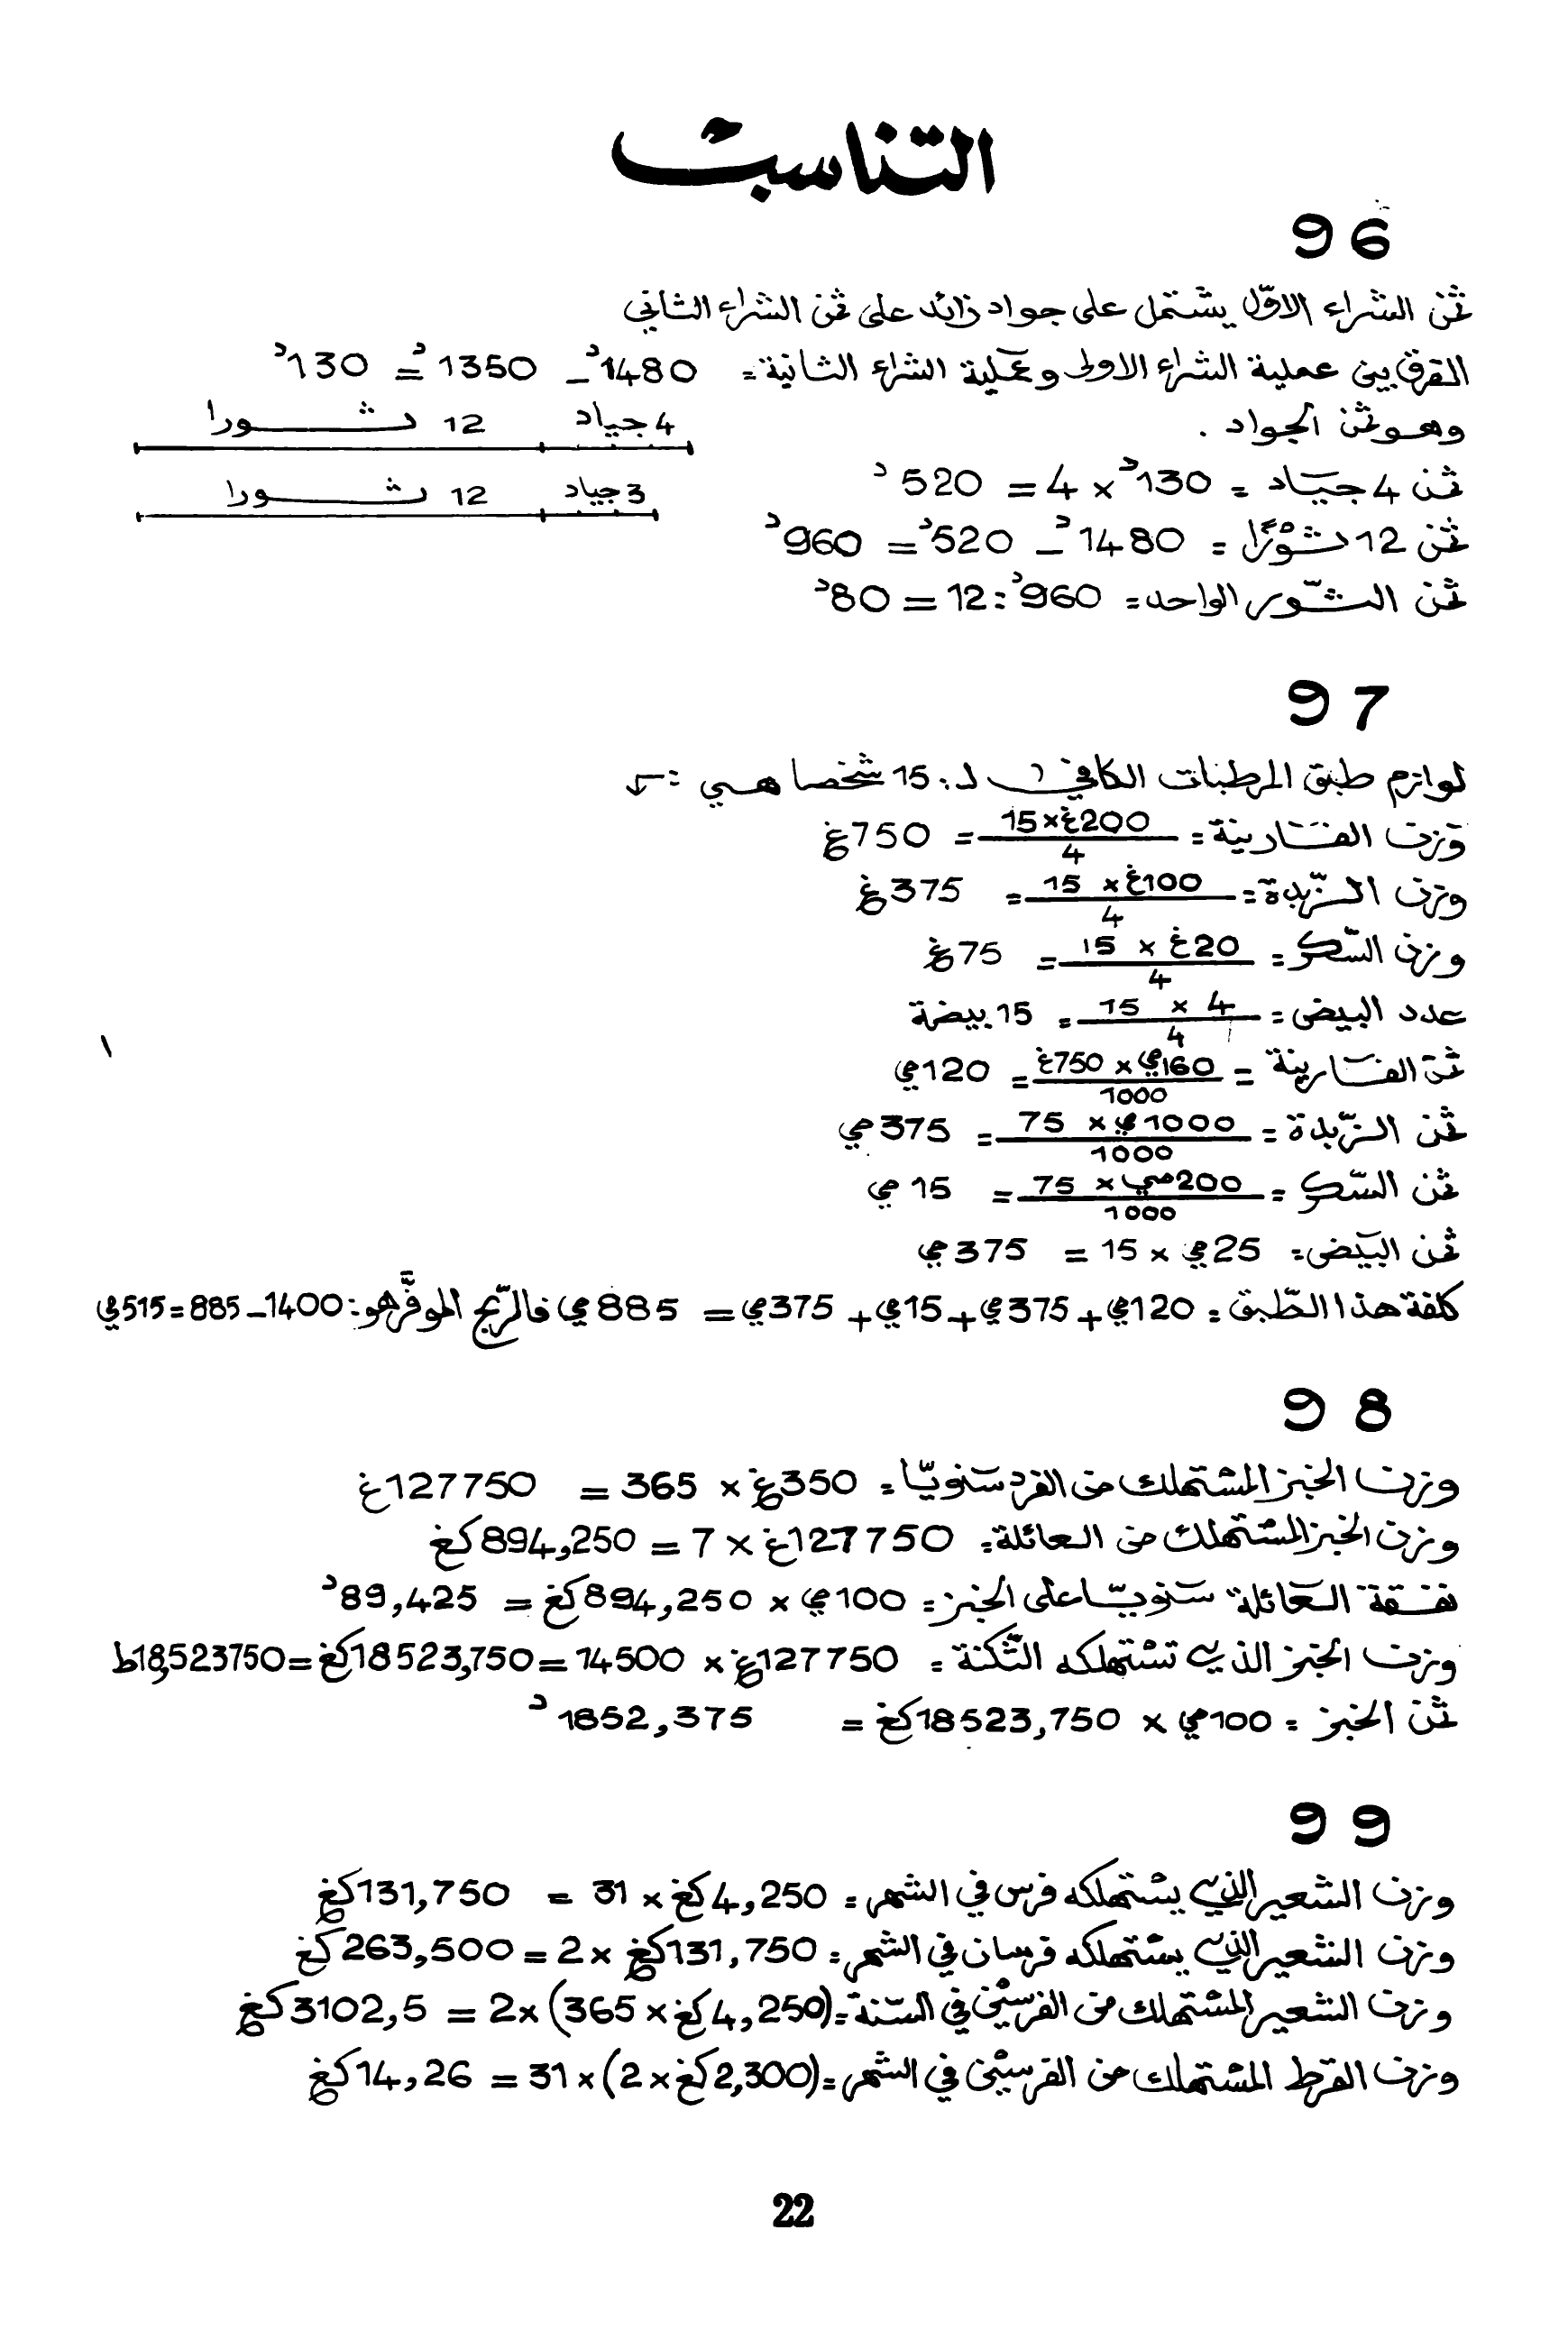 التناسب
96
ثمن الشراء الاوّل يشتمل على جواد زائد على ثمن الشراء الثاني
الفرق بين عملية الشراء الاولى وعملية الشراء الثانية = 1480د - 1350د = 130د
وهو ثمن الجواد .
4 جياد 12 ثورا
3 جياد 12 ثورا
ثمن 4 جياد = 130د × 4 = 520د
ثمن 12 ثورًا = 1480د - 520د = 960د
ثمن الثّور الواحد = 960د : 12 = 80د
97
لوازم طبق المرطبات الكافي لـ : 15 شخصا هي :
وزن الفارينة = 200غ×15 / 4 = 750غ
وزن الزّبدة = 100غ× 15 / 4 = 375غ
وزن السّكر = 20غ × 15 / 4 = 75غ
عدد البيض = 4 × 15 / 4 = 15 بيضة
ثمن الفارينة = 160مي × 750غ / 1000 = 120مي
ثمن الزّبدة = 1000مي× 75 / 1000 = 375مي
ثمن السّكر = 200مي × 75 / 1000 = 15 مي
ثمن البيض = 25مي × 15 = 375مي
كلفة هذا الطّبق = 120مي + 375مي + 15مي + 375مي = 885مي فالرّبح الموفَّر هو : 1400 - 885 = 515مي
98
وزن الخبز المشتهلك من الفرد سنويّا = 350غ × 365 = 127750غ
وزن الخبز المشتهلك من العائلة = 127750غ × 7 = 894,250كغ
نفقة العائلة سنويّا على الخبز = 100مي × 894,250كغ = 89,425د
وزن الخبز الذي تشتهلكه الثّكنة = 127750غ × 14500 = 18523,750كغ = 18,523750ط
ثمن الخبز = 100مي × 18523,750كغ = 1852,375د
99
وزن الشعير الذي يشتهلكه فرس في الشهر = 4,250كغ × 31 = 131,750كغ
وزن الشعير الذي يشتهلكه فرسان في الشهر = 131,750كغ × 2 = 263,500كغ
وزن الشعير المشتهلك من الفرسين في السّنة = (4,250كغ × 365) × 2 = 3102,5كغ
وزن القرط المشتهلك من الفرسين في الشهر = (2,300كغ × 2) × 31 = 14,26كغ
22